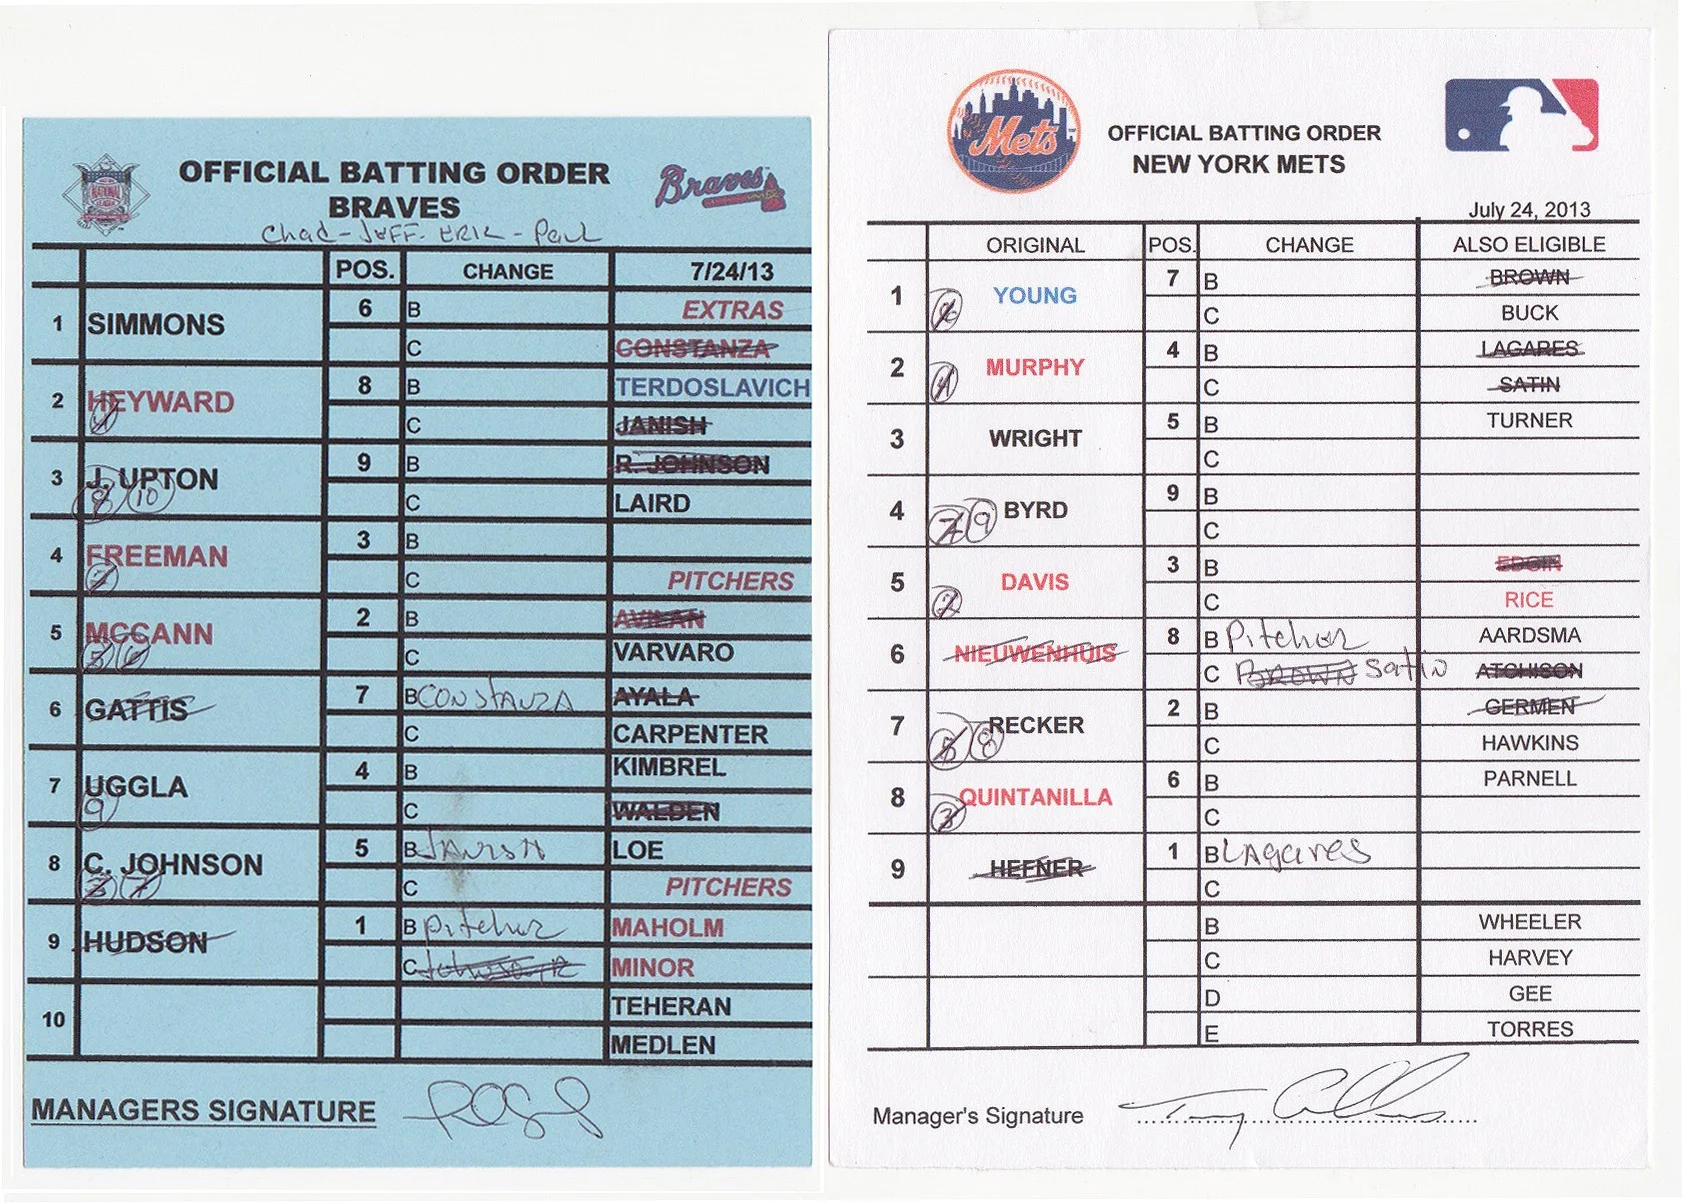 OFFICIAL BATTING ORDER
Braves
BRAVES
Chad - JEFF - ERIC - Paul
POS. CHANGE 7/24/13
1 SIMMONS 6 B EXTRAS
C CONSTANZA
2 HEYWARD 8 B TERDOSLAVICH
4 C JANISH
3 J. UPTON 9 B R. JOHNSON
8 10 C LAIRD
4 FREEMAN 3 B
2 C PITCHERS
5 MCCANN 2 B AVILAN
5 6 C VARVARO
6 GATTIS 7 B CONSTANZA AYALA
C CARPENTER
7 UGGLA 4 B KIMBREL
9 C WALDEN
8 C. JOHNSON 5 B JANISH LOE
3 7 C PITCHERS
9 HUDSON 1 B Pitcher MAHOLM
C Johnson R MINOR
10 TEHERAN
MEDLEN
MANAGERS SIGNATURE
Mets
OFFICIAL BATTING ORDER
NEW YORK METS
July 24, 2013
ORIGINAL POS. CHANGE ALSO ELIGIBLE
1 YOUNG 7 B BROWN
C BUCK
2 MURPHY 4 B LAGARES
4 C SATIN
3 WRIGHT 5 B TURNER
C
4 BYRD 9 B
7 9 C
5 DAVIS 3 B EDGIN
2 C RICE
6 NIEUWENHUIS 8 B Pitcher AARDSMA
C BROWN Satin ATCHISON
7 RECKER 2 B GERMEN
5 8 C HAWKINS
8 QUINTANILLA 6 B PARNELL
3 C
9 HEFNER 1 B LAgares
C
B WHEELER
C HARVEY
D GEE
E TORRES
Manager's Signature Terry Collins